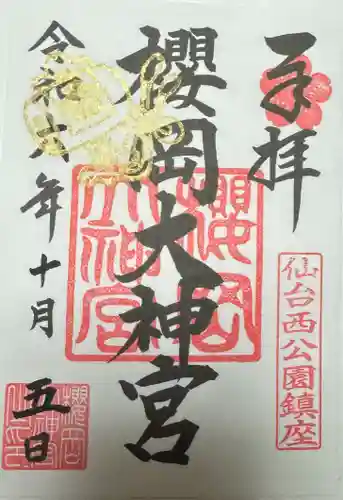 奉拝
櫻岡大神宮
令和六年十月
五日
仙台西公園鎮座
櫻岡大神宮